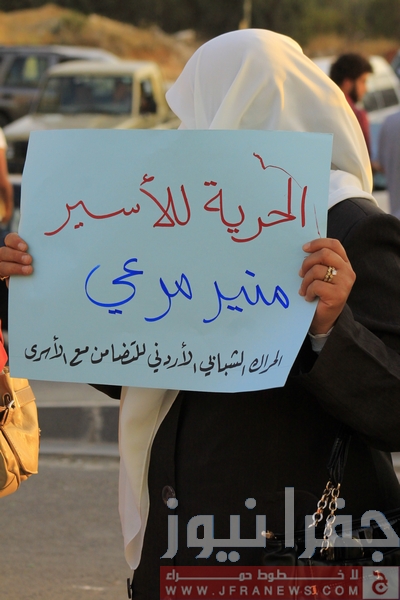 الحرية للأسير
منير مرعي
الحراك الشبابي الأردني للتضامن مع الأسرى
جفرا نيوز
لا خطوط حمراء
WWW.JFRANEWS.COM